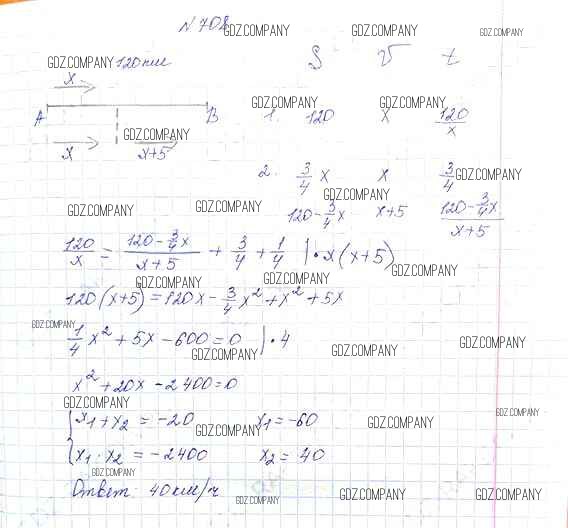 N 708
GDZ.COMPANY GDZ.COMPANY GDZ.COMPANY
GDZ.COMPANY 120 км S V t
x
A B GDZ.COMPANY GDZ.COMPANY
1. 120 x 120/x
x GDZ.COMPANY x+5
2. 3/4 x x 3/4 GDZ.COMPANY
GDZ.COMPANY
GDZ.COMPANY GDZ.COMPANY 120 - 3/4 x x+5 (120 - 3/4 x)/(x+5)
120/x = (120 - 3/4 x)/(x+5) + 3/4 + 1/4 | · x(x+5)
GDZ.COMPANY GDZ.COMPANY GDZ.COMPANY
120(x+5) = 120x - 3/4 x² + x² + 5x
GDZ.COMPANY GDZ.COMPANY
1/4 x² + 5x - 600 = 0 | · 4
GDZ.COMPANY GDZ.COMPANY GDZ.COMPANY
x² + 20x - 2400 = 0
GDZ.COMPANY
{ x₁ + x₂ = -20 x₁ = -60
GDZ.COMPANY GDZ.COMPANY GDZ.COMPANY
x₁ · x₂ = -2400 x₂ = 40
GDZ.COMPANY
Ответ: 40 км/ч
GDZ.COMPANY GDZ.COMPANY GDZ.COMPANY